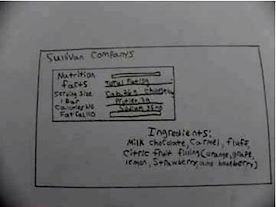 Sullivan Companys
Nutrition
facts
Serving Size
1 Bar
Calories
Fat Cal
Total Fat
Ingredients:
Milk chocolate, Carmel, fluff,
Citric fruit filling (orange, grape,
lemon, Strawberry, and blueberry)